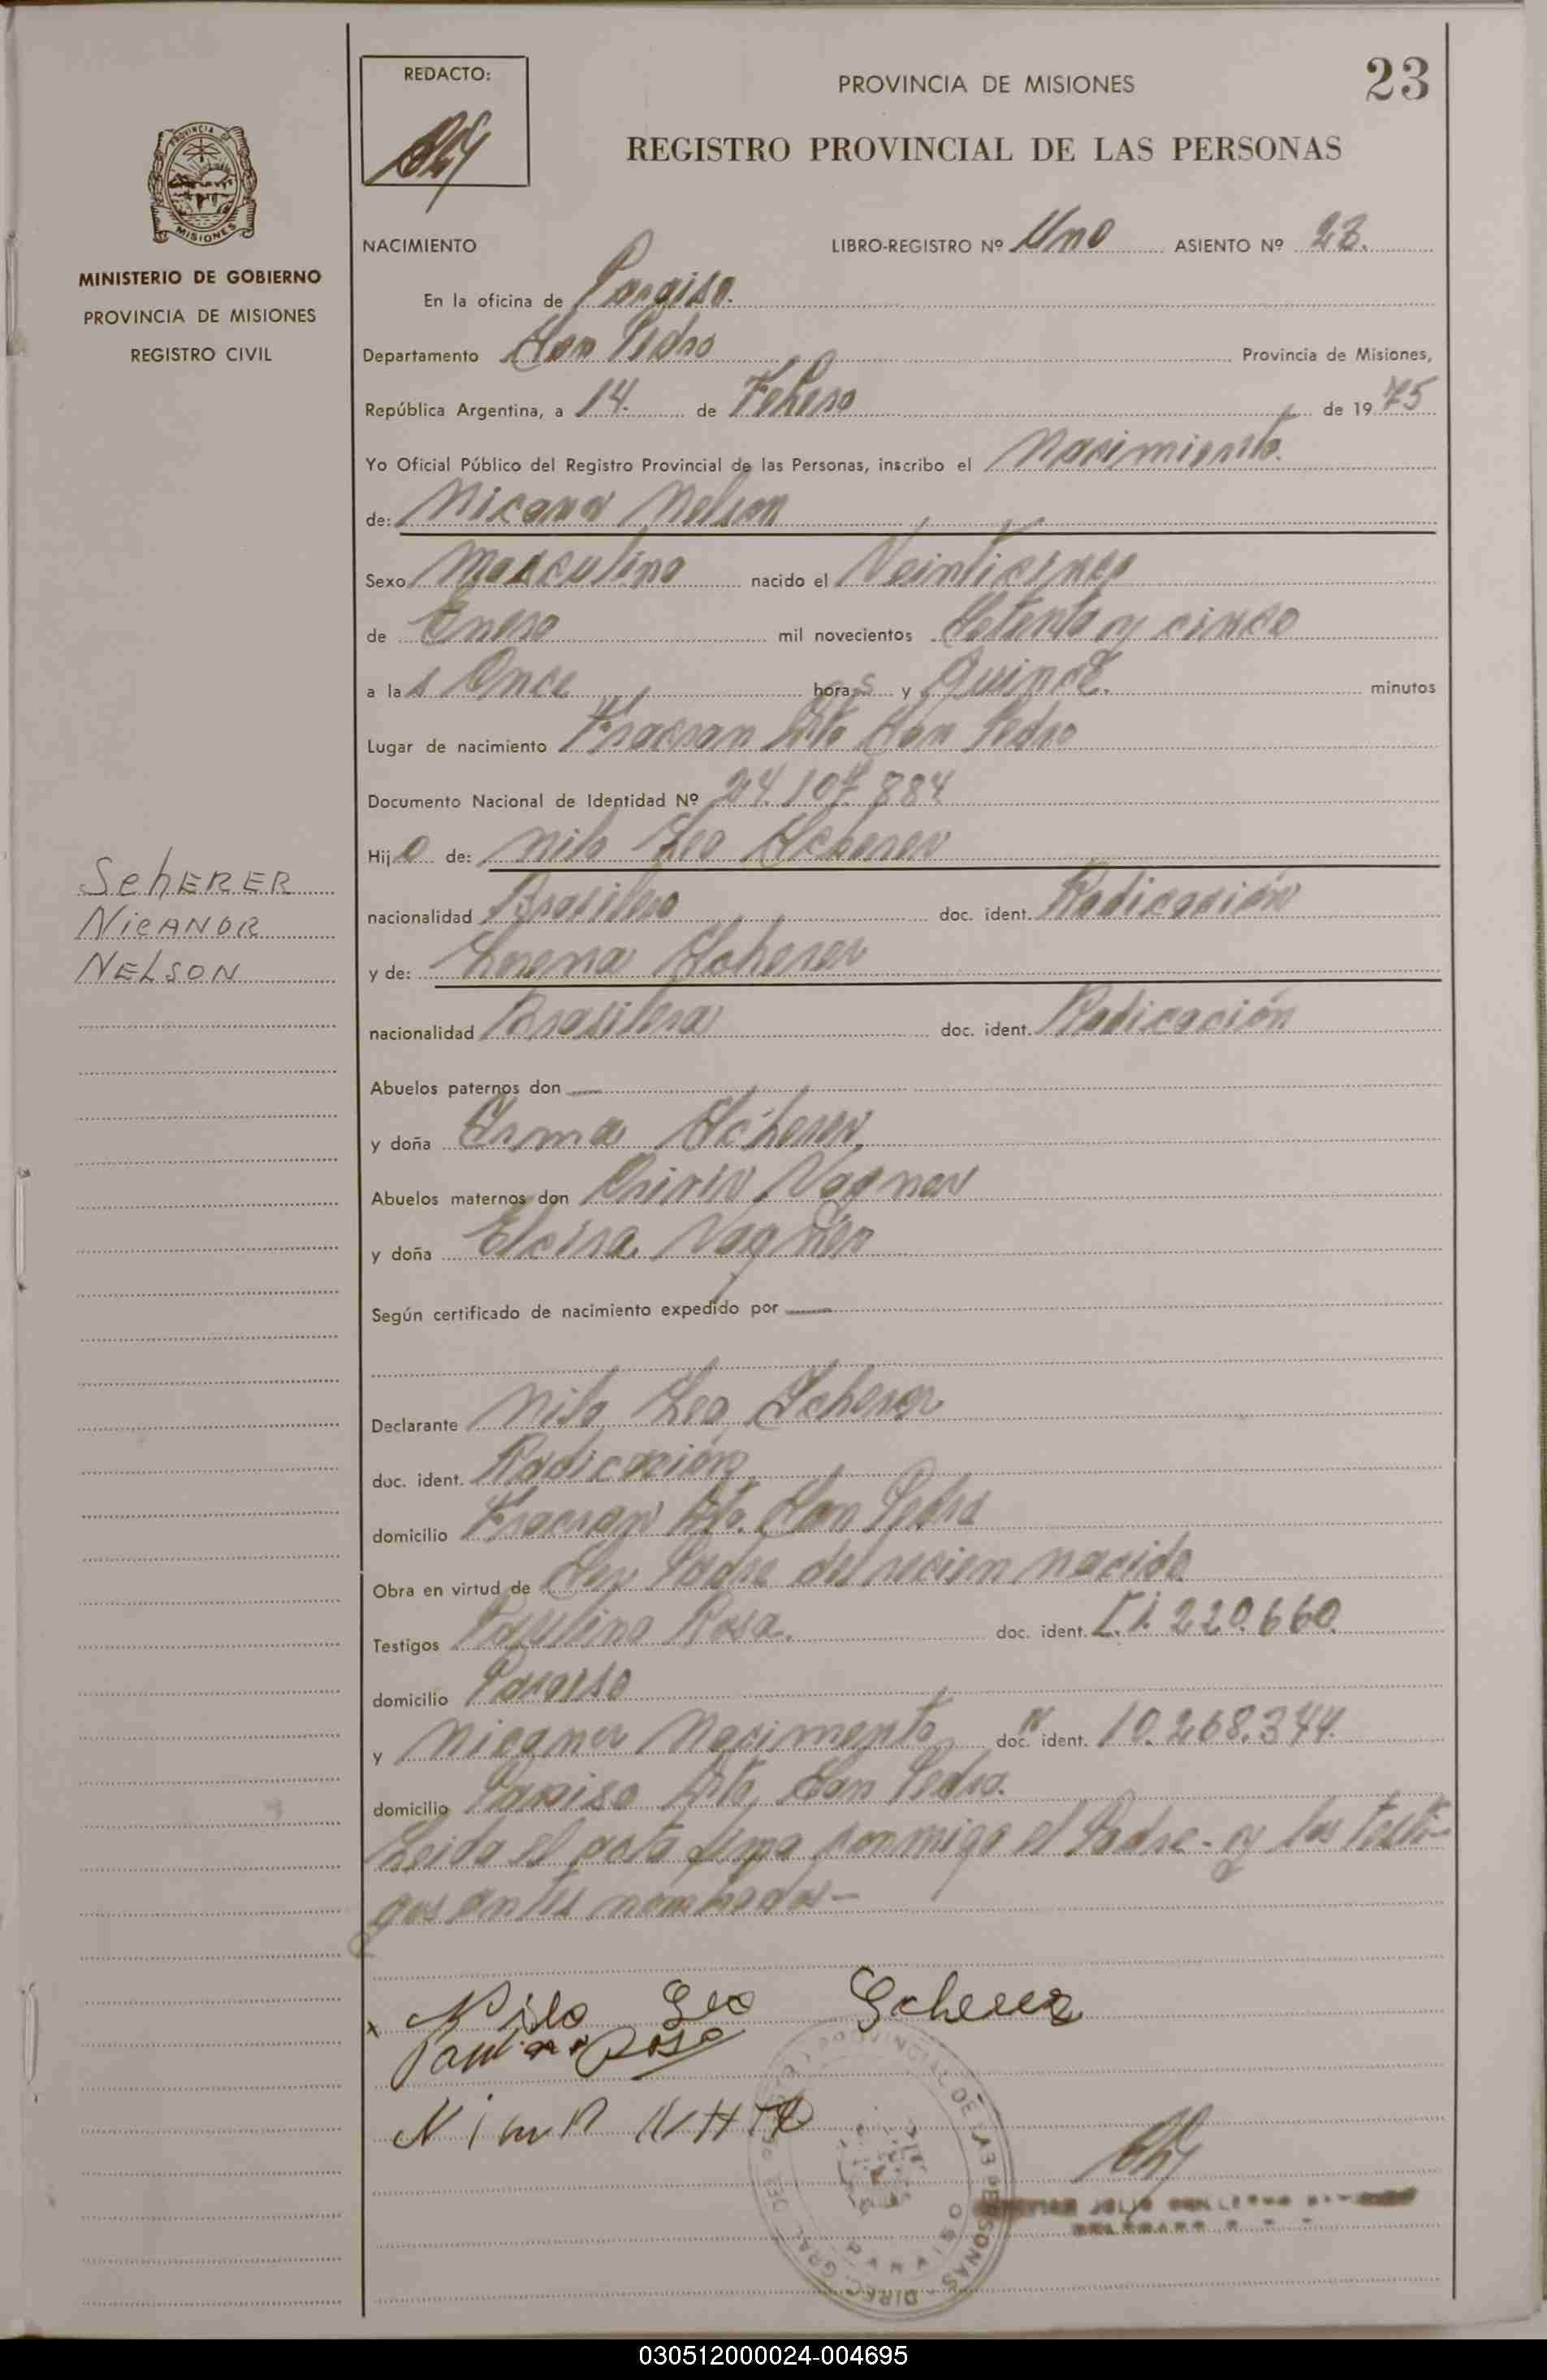 REDACTO:
PROVINCIA DE MISIONES
23
REGISTRO PROVINCIAL DE LAS PERSONAS
PROVINCIA DE
MISIONES
MINISTERIO DE GOBIERNO
PROVINCIA DE MISIONES
REGISTRO CIVIL
NACIMIENTO LIBRO-REGISTRO Nº Uno ASIENTO Nº 23.
En la oficina de Paraiso.
Departamento San Pedro Provincia de Misiones,
República Argentina, a 14. de Febrero de 1975
Yo Oficial Público del Registro Provincial de las Personas, inscribo el Nacimiento.
de: Nicanor Nelson
Sexo Masculino nacido el Veinticinco
de Enero mil novecientos Setenta y cinco
a las Once horas y Quince. minutos
Lugar de nacimiento Fracran Dto San Pedro
Documento Nacional de Identidad Nº 24.107.884
Hijo de: Nilo Leo Scherer
SCHERER
NICANOR
NELSON
nacionalidad Brasilero doc. ident. Radicación
y de: Lorena Scherer
nacionalidad Brasilera doc. ident. Radicación
Abuelos paternos don
y doña Erma Scherer
Abuelos maternos don Vagner
y doña Vagner
Según certificado de nacimiento expedido por
Declarante Nilo Leo Scherer
doc. ident. Radicación
domicilio Fracran Dto. San Pedro
Obra en virtud de Ser Padre del recien nacido
Testigos Paulino Rosa. doc. ident. C.I. 220.660
domicilio Paraiso
y Nicanor Nacimento doc. ident. 10.268.344.
domicilio Paraiso Dto. San Pedro.
Leida el acta firma conmigo el Padre - y los testi-
gos antes nombrados -
x Nilo Leo Scherer
Paulino Rosa
DIREC. GRAL. DEL REG. PROVINCIAL DE LAS PERSONAS
JULIO GUILLERMO
030512000024-004695